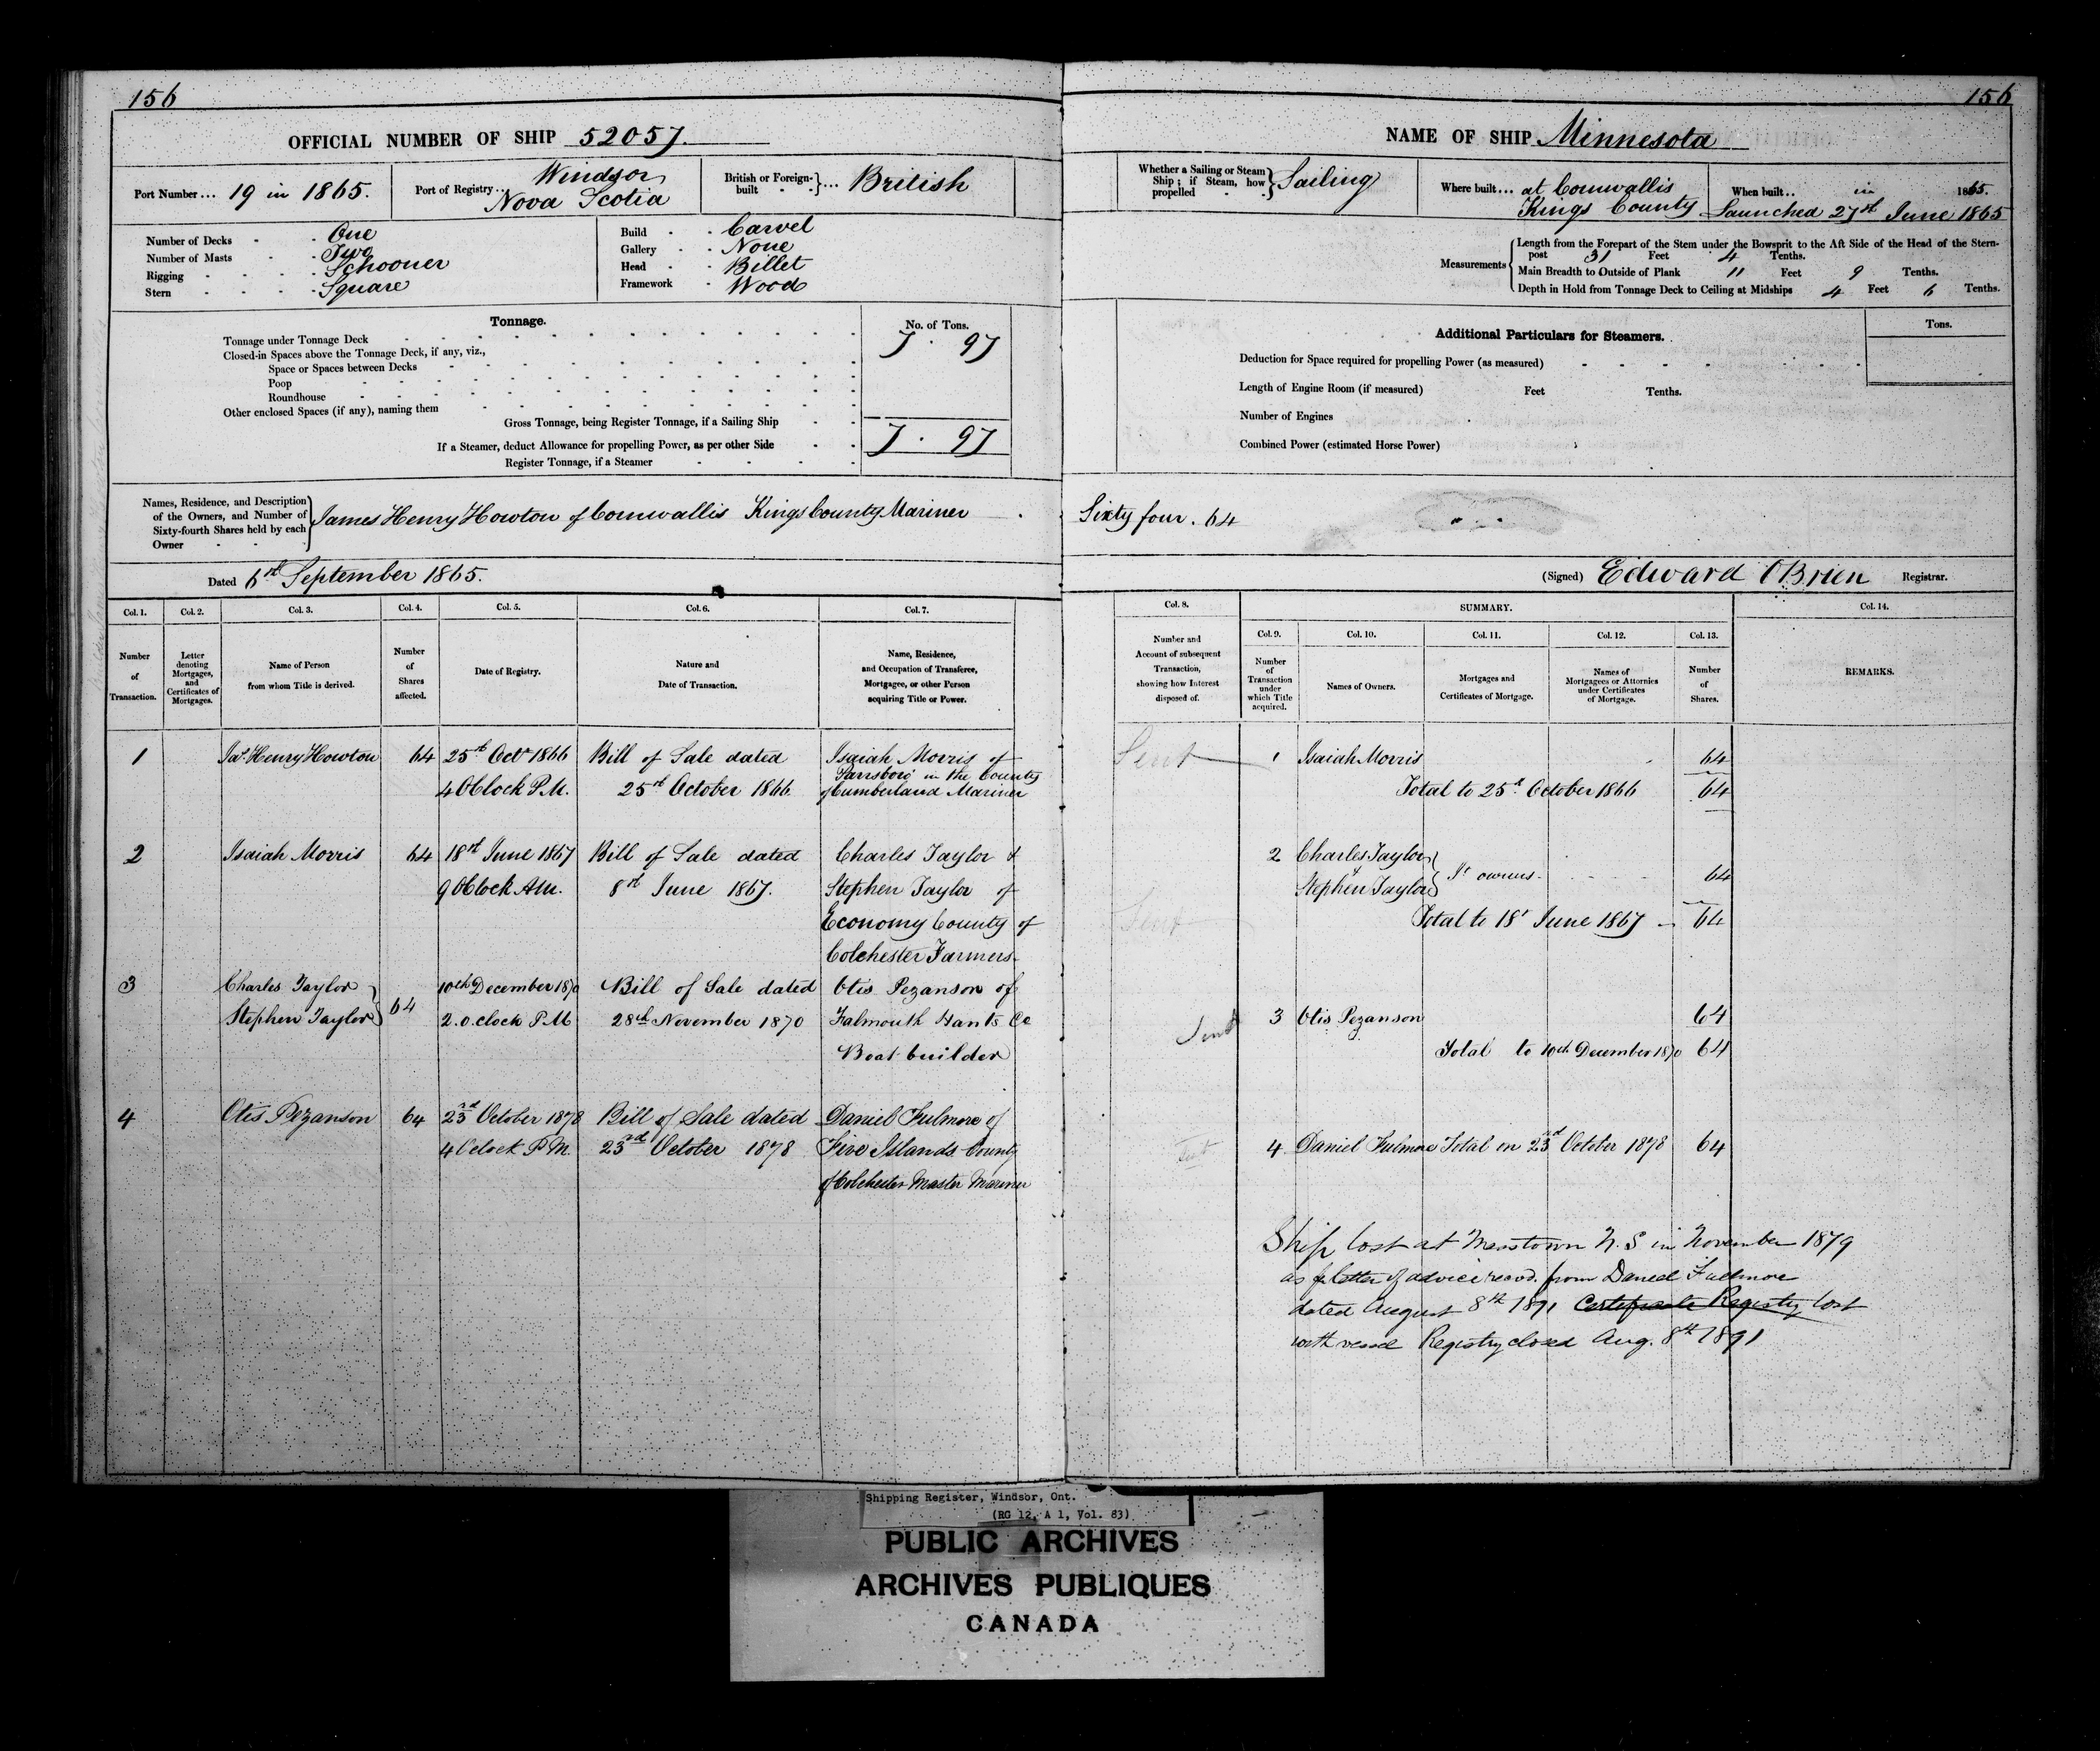 156
OFFICIAL NUMBER OF SHIP 52057.
Port Number... 19 in 1865.
Port of Registry.. Windsor
Nova Scotia
British or Foreign-built }... British
Number of Decks - - One
Number of Masts - - Two
Rigging - - - - Schooner
Stern - - - - Square
Build - - Carvel
Gallery - - None
Head - - Billet
Framework - Wood
Tonnage.
No. of Tons.
Tonnage under Tonnage Deck 7 . 97
Closed-in Spaces above the Tonnage Deck, if any, viz.,
Space or Spaces between Decks
Poop
Roundhouse
Other enclosed Spaces (if any), naming them
Gross Tonnage, being Register Tonnage, if a Sailing Ship
7 . 97
If a Steamer, deduct Allowance for propelling Power, as per other Side
Register Tonnage, if a Steamer
Names, Residence, and Description
of the Owners, and Number of
Sixty-fourth Shares held by each
Owner
James Henry Howton of Cornwallis Kings County Mariner
Dated 6th September 1865.
Col. 1. Col. 2. Col. 3. Col. 4. Col. 5. Col. 6. Col. 7.
Number of Transaction.
Letter denoting Mortgages, and Certificates of Mortgages.
Name of Person from whom Title is derived.
Number of Shares affected.
Date of Registry.
Nature and Date of Transaction.
Name, Residence, and Occupation of Transferee, Mortgagee, or other Person acquiring Title or Power.
1 Jas. Henry Howton 64 25th Octr 1866 Bill of Sale dated Isaiah Morris of
4 OClock P.M. 25th October 1866 Parrsboro' in the County
of Cumberland Mariner
2 Isaiah Morris 64 18th June 1867 Bill of Sale dated Charles Taylor &
9 OClock AM. 8th June 1867. Stephen Taylor of
Economy County of
Colchester Farmers.
3 Charles Taylor 10th December 1870 Bill of Sale dated Otis Pezanson of
Stephen Taylor } 64 2.o.clock P.M 28th November 1870 Falmouth Hants Co
Boat builder
4 Otis Pezanson 64 23rd October 1878 Bill of Sale dated Daniel Fulmore of
4 Oclock P.M. 23rd October 1878 Five Islands County
of Colchester Master Mariner
156
NAME OF SHIP Minnesota
Whether a Sailing or Steam
Ship; if Steam, how
propelled } Sailing
Where built... at Cornwallis
Kings County
When built.. in 1865.
Launched 27th June 1865
Measurements
Length from the Forepart of the Stem under the Bowsprit to the Aft Side of the Head of the Stern-
post 31 Feet 4 Tenths.
Main Breadth to Outside of Plank 11 Feet 9 Tenths.
Depth in Hold from Tonnage Deck to Ceiling at Midships 4 Feet 6 Tenths.
Additional Particulars for Steamers.
Tons.
Deduction for Space required for propelling Power (as measured)
Length of Engine Room (if measured) Feet Tenths.
Number of Engines
Combined Power (estimated Horse Power)
Sixty four . 64
(Signed) Edward OBrien Registrar.
Col. 8. SUMMARY. Col. 14.
Col. 9. Col. 10. Col. 11. Col. 12. Col. 13.
Number and Account of subsequent Transaction, showing how Interest disposed of.
Number of Transaction under which Title acquired.
Names of Owners.
Mortgages and Certificates of Mortgage.
Names of Mortgagees or Attornies under Certificates of Mortgage.
Number of Shares.
REMARKS.
Sent 1 Isaiah Morris 64
Total to 25th October 1866 64
2 Charles Taylor
Stephen Taylor } Jt owners - 64
Sent
Total to 18th June 1867 - 64
Sent 3 Otis Pezanson 64
Total to 10th December 1870 64
4 Daniel Fulmore Total on 23rd October 1878 64
Ship lost at N.S in November 1879
as pr letter of advice recvd. from Daniel Fulmore
dated August 8th 1891 Certificate Registry lost
with vessel Registry closed Aug. 8th 1891
Shipping Register, Windsor, Ont.
(RG 12, A 1, Vol. 83)
PUBLIC ARCHIVES
ARCHIVES PUBLIQUES
CANADA